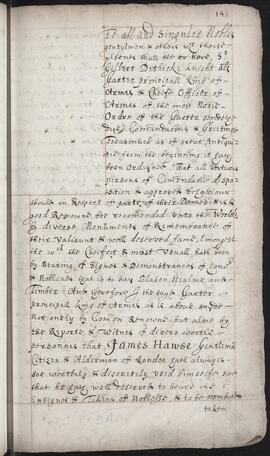 143
To all and Singuler Nobles
gentylmen & others wch these
presents shall see or heare, Sr
Gilbert Dethicke Knight als
Garter principall King of
Armes & Chiefe Officer of
Armes of the most Noble
Order of the Garter sendeth
due Comendacons & Greeting
Forasmuch as of great Antiqui-
tie from the beginning it hath
been Ordeyned That all vertuous
persons of Comendable dispo-
sition & approved behaviour
should in Respect of parte of their Demerites &
good Renowne bee recomended unto the World
by diverse Monuments of Remembrance of
their Valiaunt & well deserved fame, Emongst
the wch the Cheifest & most Usuall hath been
by Bearing of Signes & Demonstrances of Honor
& Noblenes that is to say Blason Healme and
Timber. And therefore I the said Garter
principall King of Armes as is above
Not onely by Comon Renowne but also by
the Reporte & Witnes of divers worthie
personnes that James Hawse Gentleman
Citizen & Alderman of London hath alwayes
soe worthily & discretely used himselfe soe
that he hath well deserved to beare the
Ensignes & Tokens of Noblesse, & to be nombred
taken